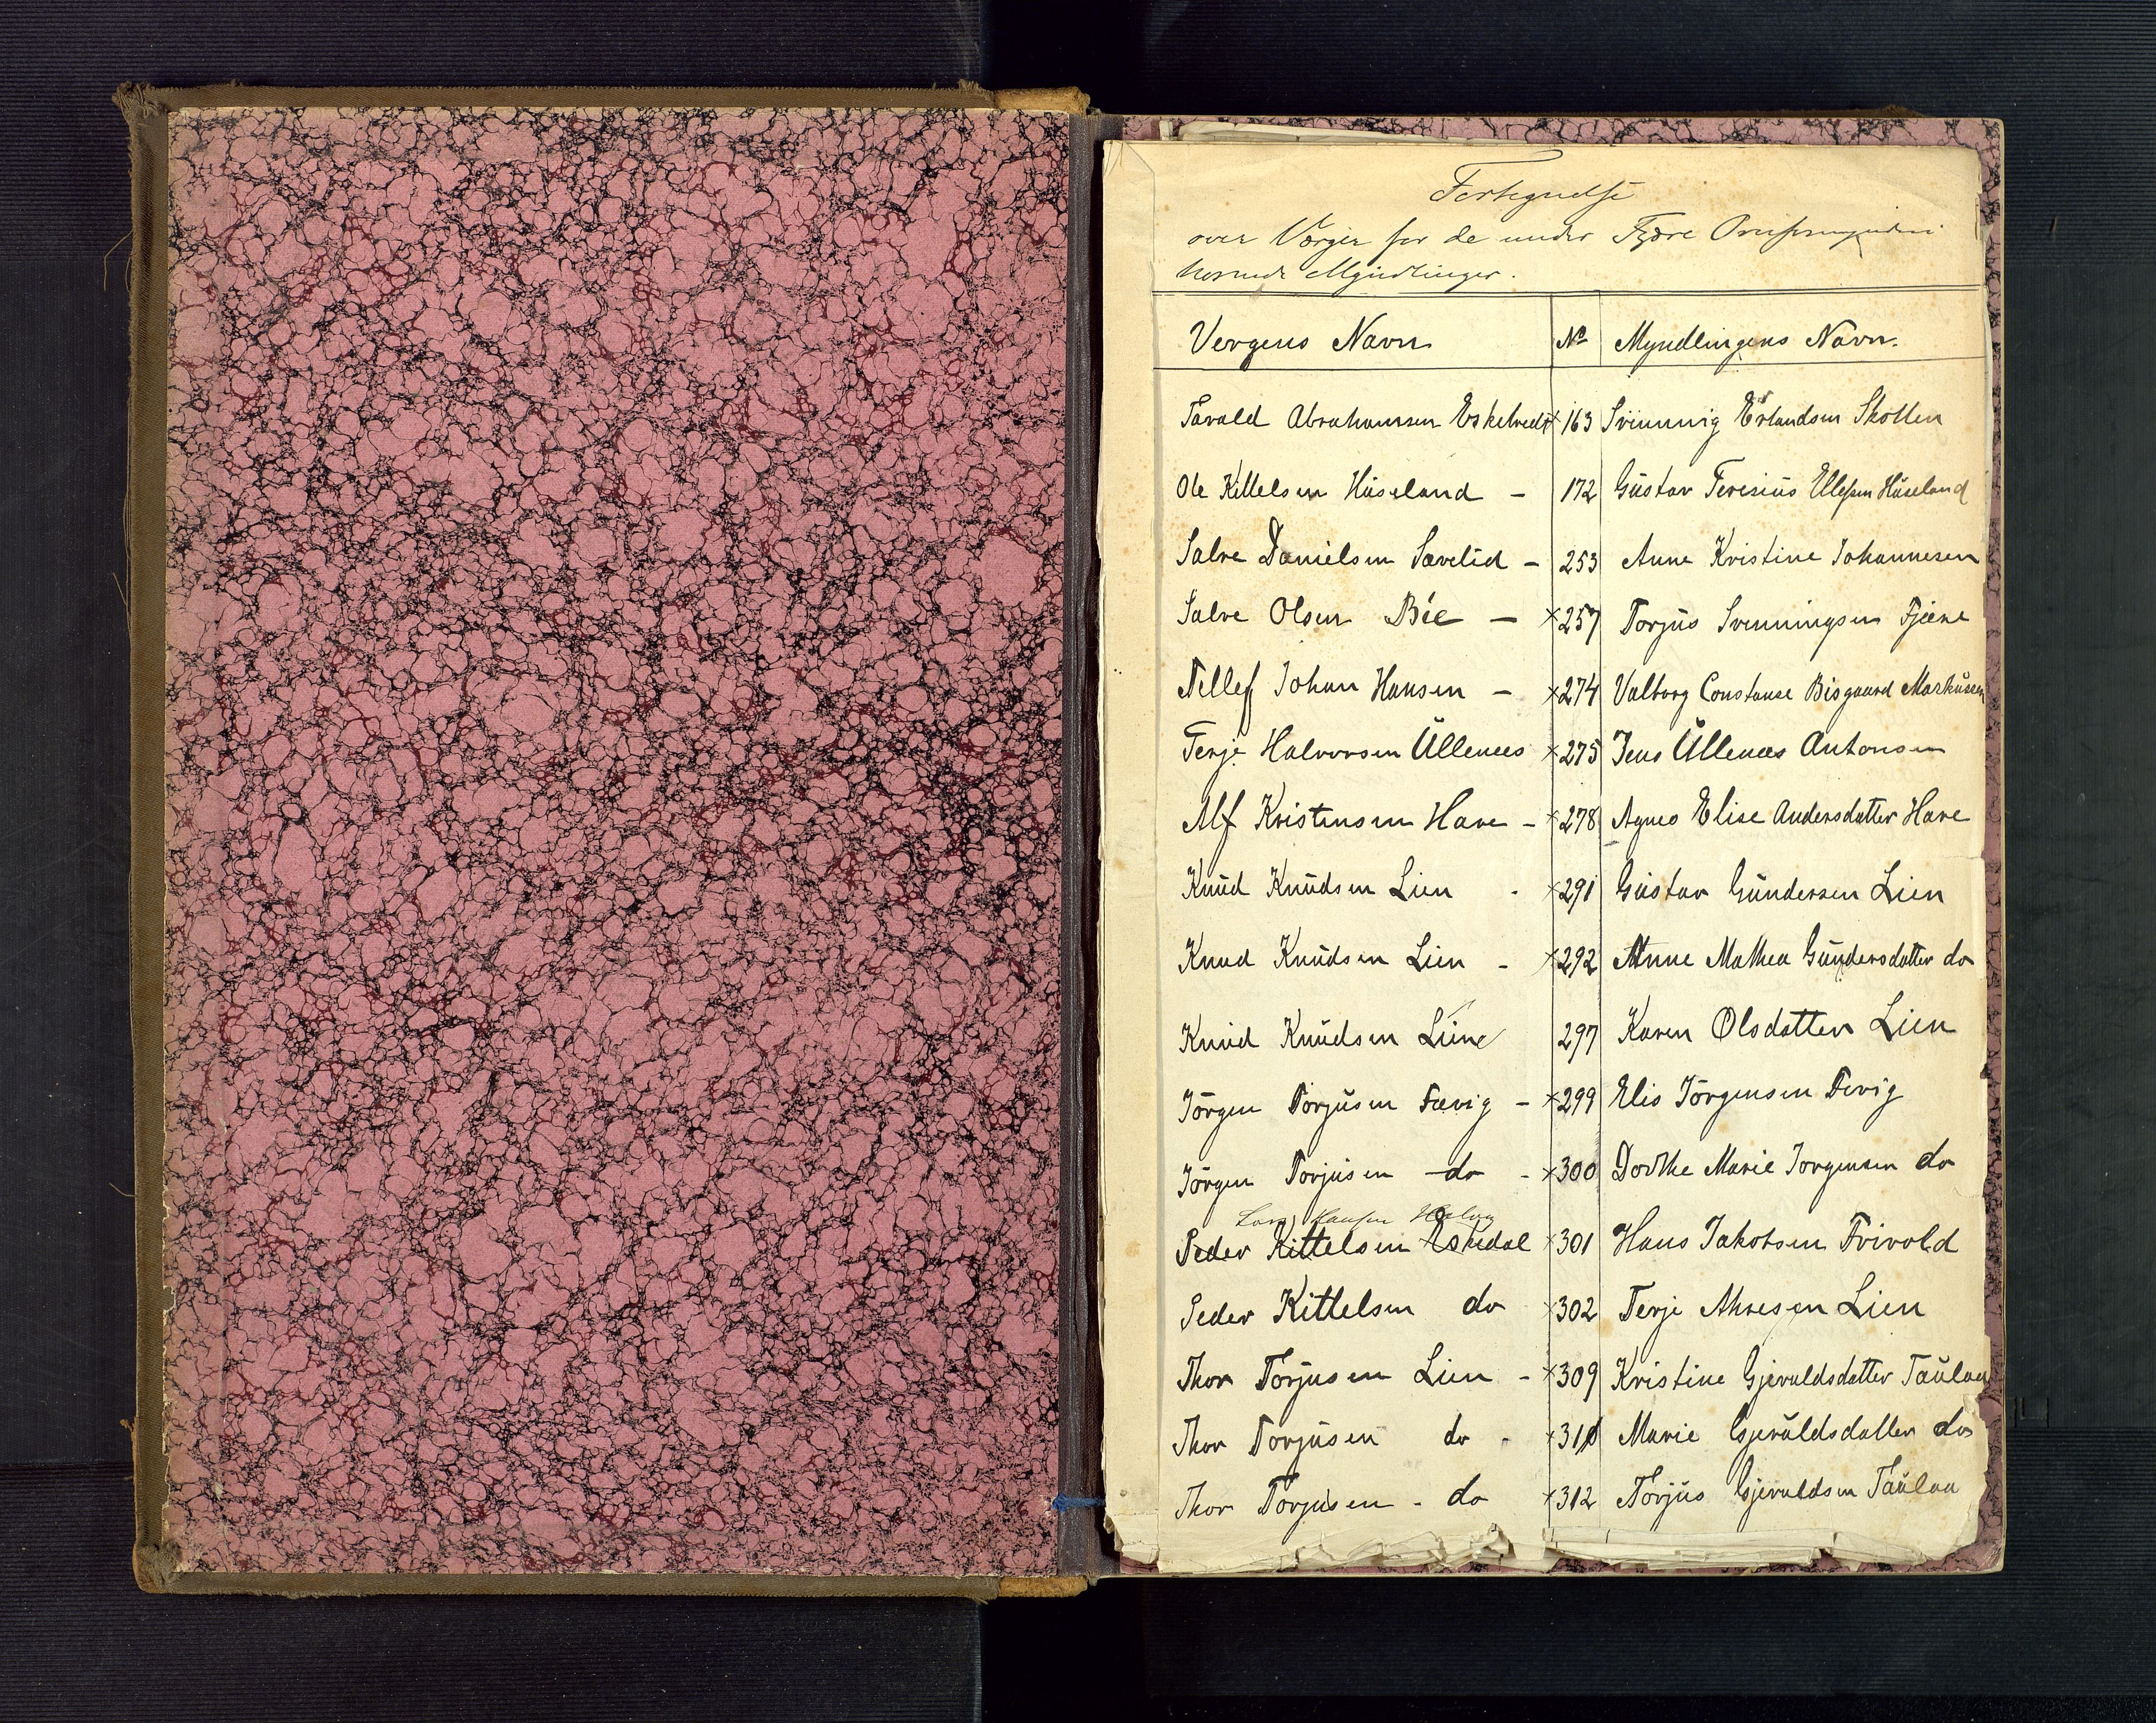 Fortegnelse
over Værger for de under Fjære
hørende Myndlinger.
Vergens Navn № Myndlingens Navn.
Tarald Abrahamsen Eskelred × 163 Svinnnig Erlandsen Skotten
Ole Kittelsen Haseland – 172 Gustav Teresius Ellefsen Haseland
Salve Danielsen Sævelid – 253 Anne Kristine Johannesen
Salve Olsen Bie – × 257 Torjus Svenningsen Fjære
Tellef Johan Hansen – × 274 Valborg Constanse Bisgaard Markussen
Terje Halvorsen Ullenæs × 275 Jens Ullenæs Antonsen
Alf Kristensen Have – × 278 Agnes Elise Andersdatter Have
Knud Knudsen Lien - × 291 Gustav Gundersen Lien
Knud Knudsen Lien - × 292 Anne Mathea Gundersdatter do
Knud Knudsen Lien 297 Karen Olsdatter Lien
Jörgen Torjusen Fævig – × 299 Elis Jörgensen Fevig
Jörgen Torjusen do - × 300 Dorthe Marie Jorgensen do
Lars Hansen
Peder Kittelsen Eskedal × 301 Hans Jakobsen Frivold
Peder Kittelsen do × 302 Terje Akresen Lien
Thor Torjusen Lien – × 309 Kristine Gjeruldsdatter Taulau
Thor Torjusen do - × 310 Marie Gjeruldsdatter do
Thor Torjusen - do × 312 Torjus Gjeruldsen Taulau